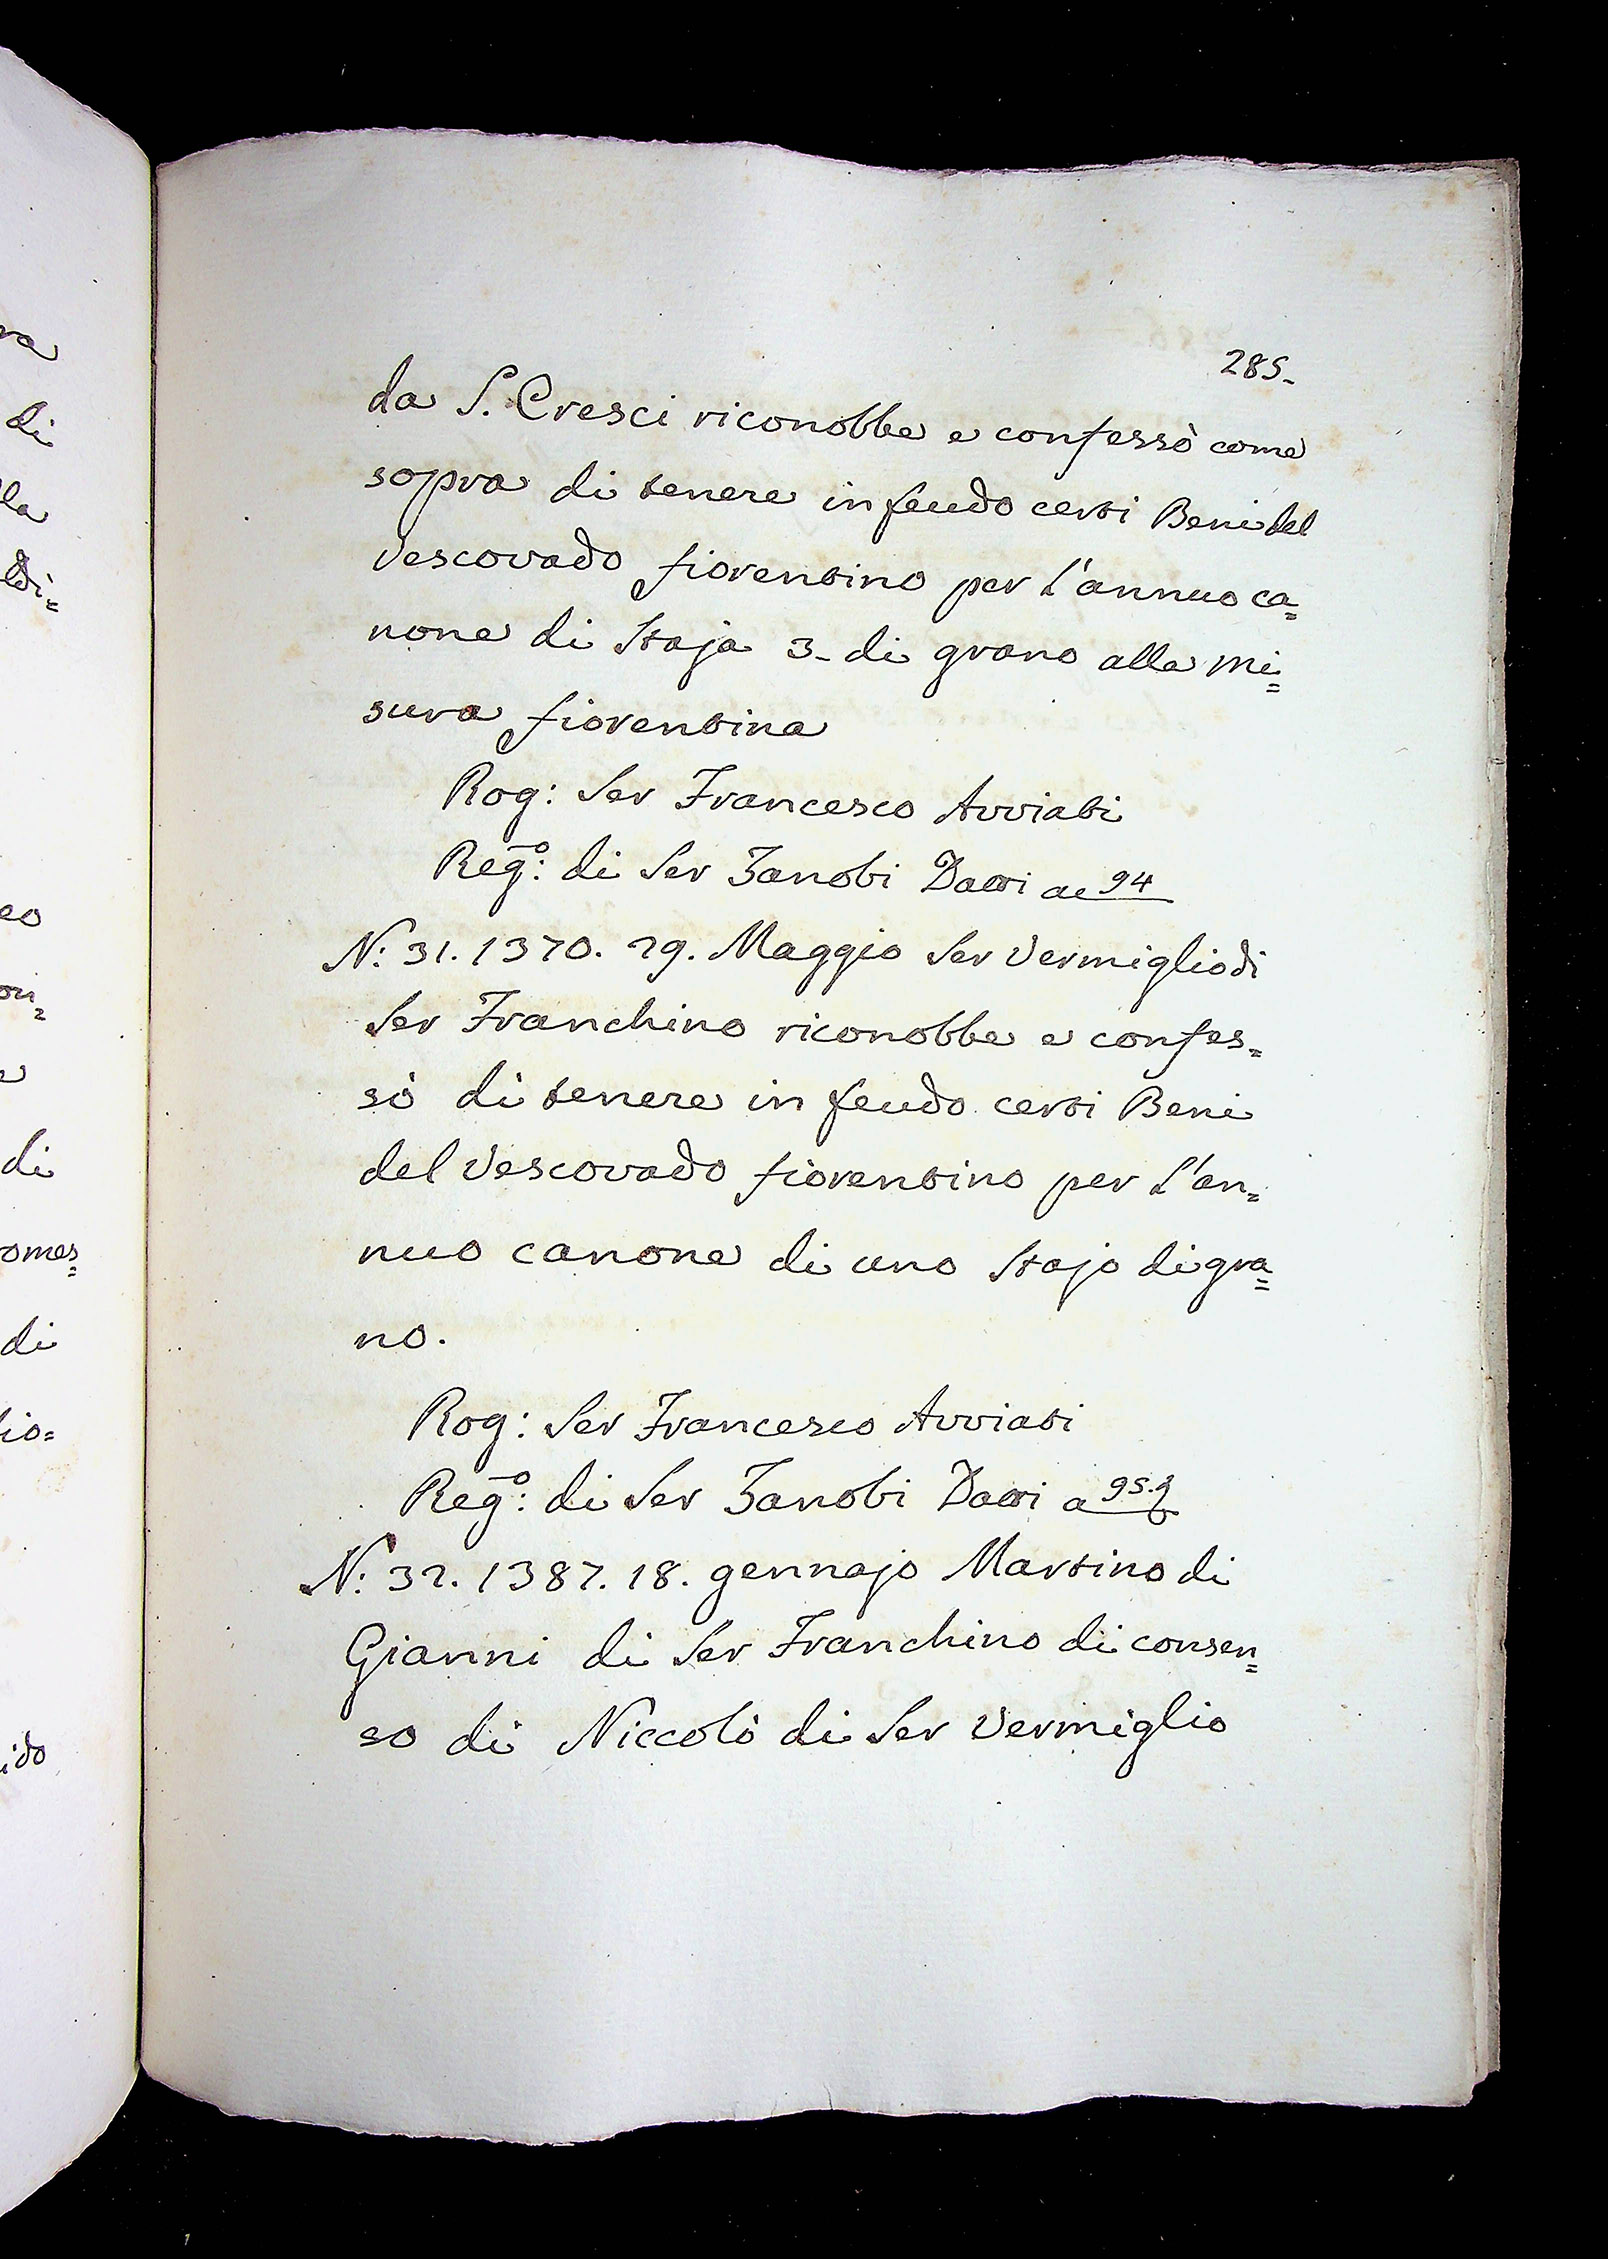 285.
da S. Cresci riconobbe e confessò come
sopra di tenere in feudo certi Beni del
Vescovado fiorentino per l'annuo ca=
none di Staja 3. di grano alla mi=
sura fiorentina
Rog: Ser Francesco Avviati
Reg.º: di Ser Zanobi ac 94
N: 31. 1370. 29. Maggio Ser Vermiglio di
Ser Franchino riconobbe e confes=
sò di tenere in feudo certi Beni
del Vescovado fiorentino per l'an=
nuo canone di uno Stajo di gra=
no.
Rog: Ser Francesco Avviati
Reg.º: di Ser Zanobi a 95.
N: 32. 1387. 18. gennajo Martino di
Gianni di Ser Franchino di consen=
so di Niccolò di Ser Vermiglio